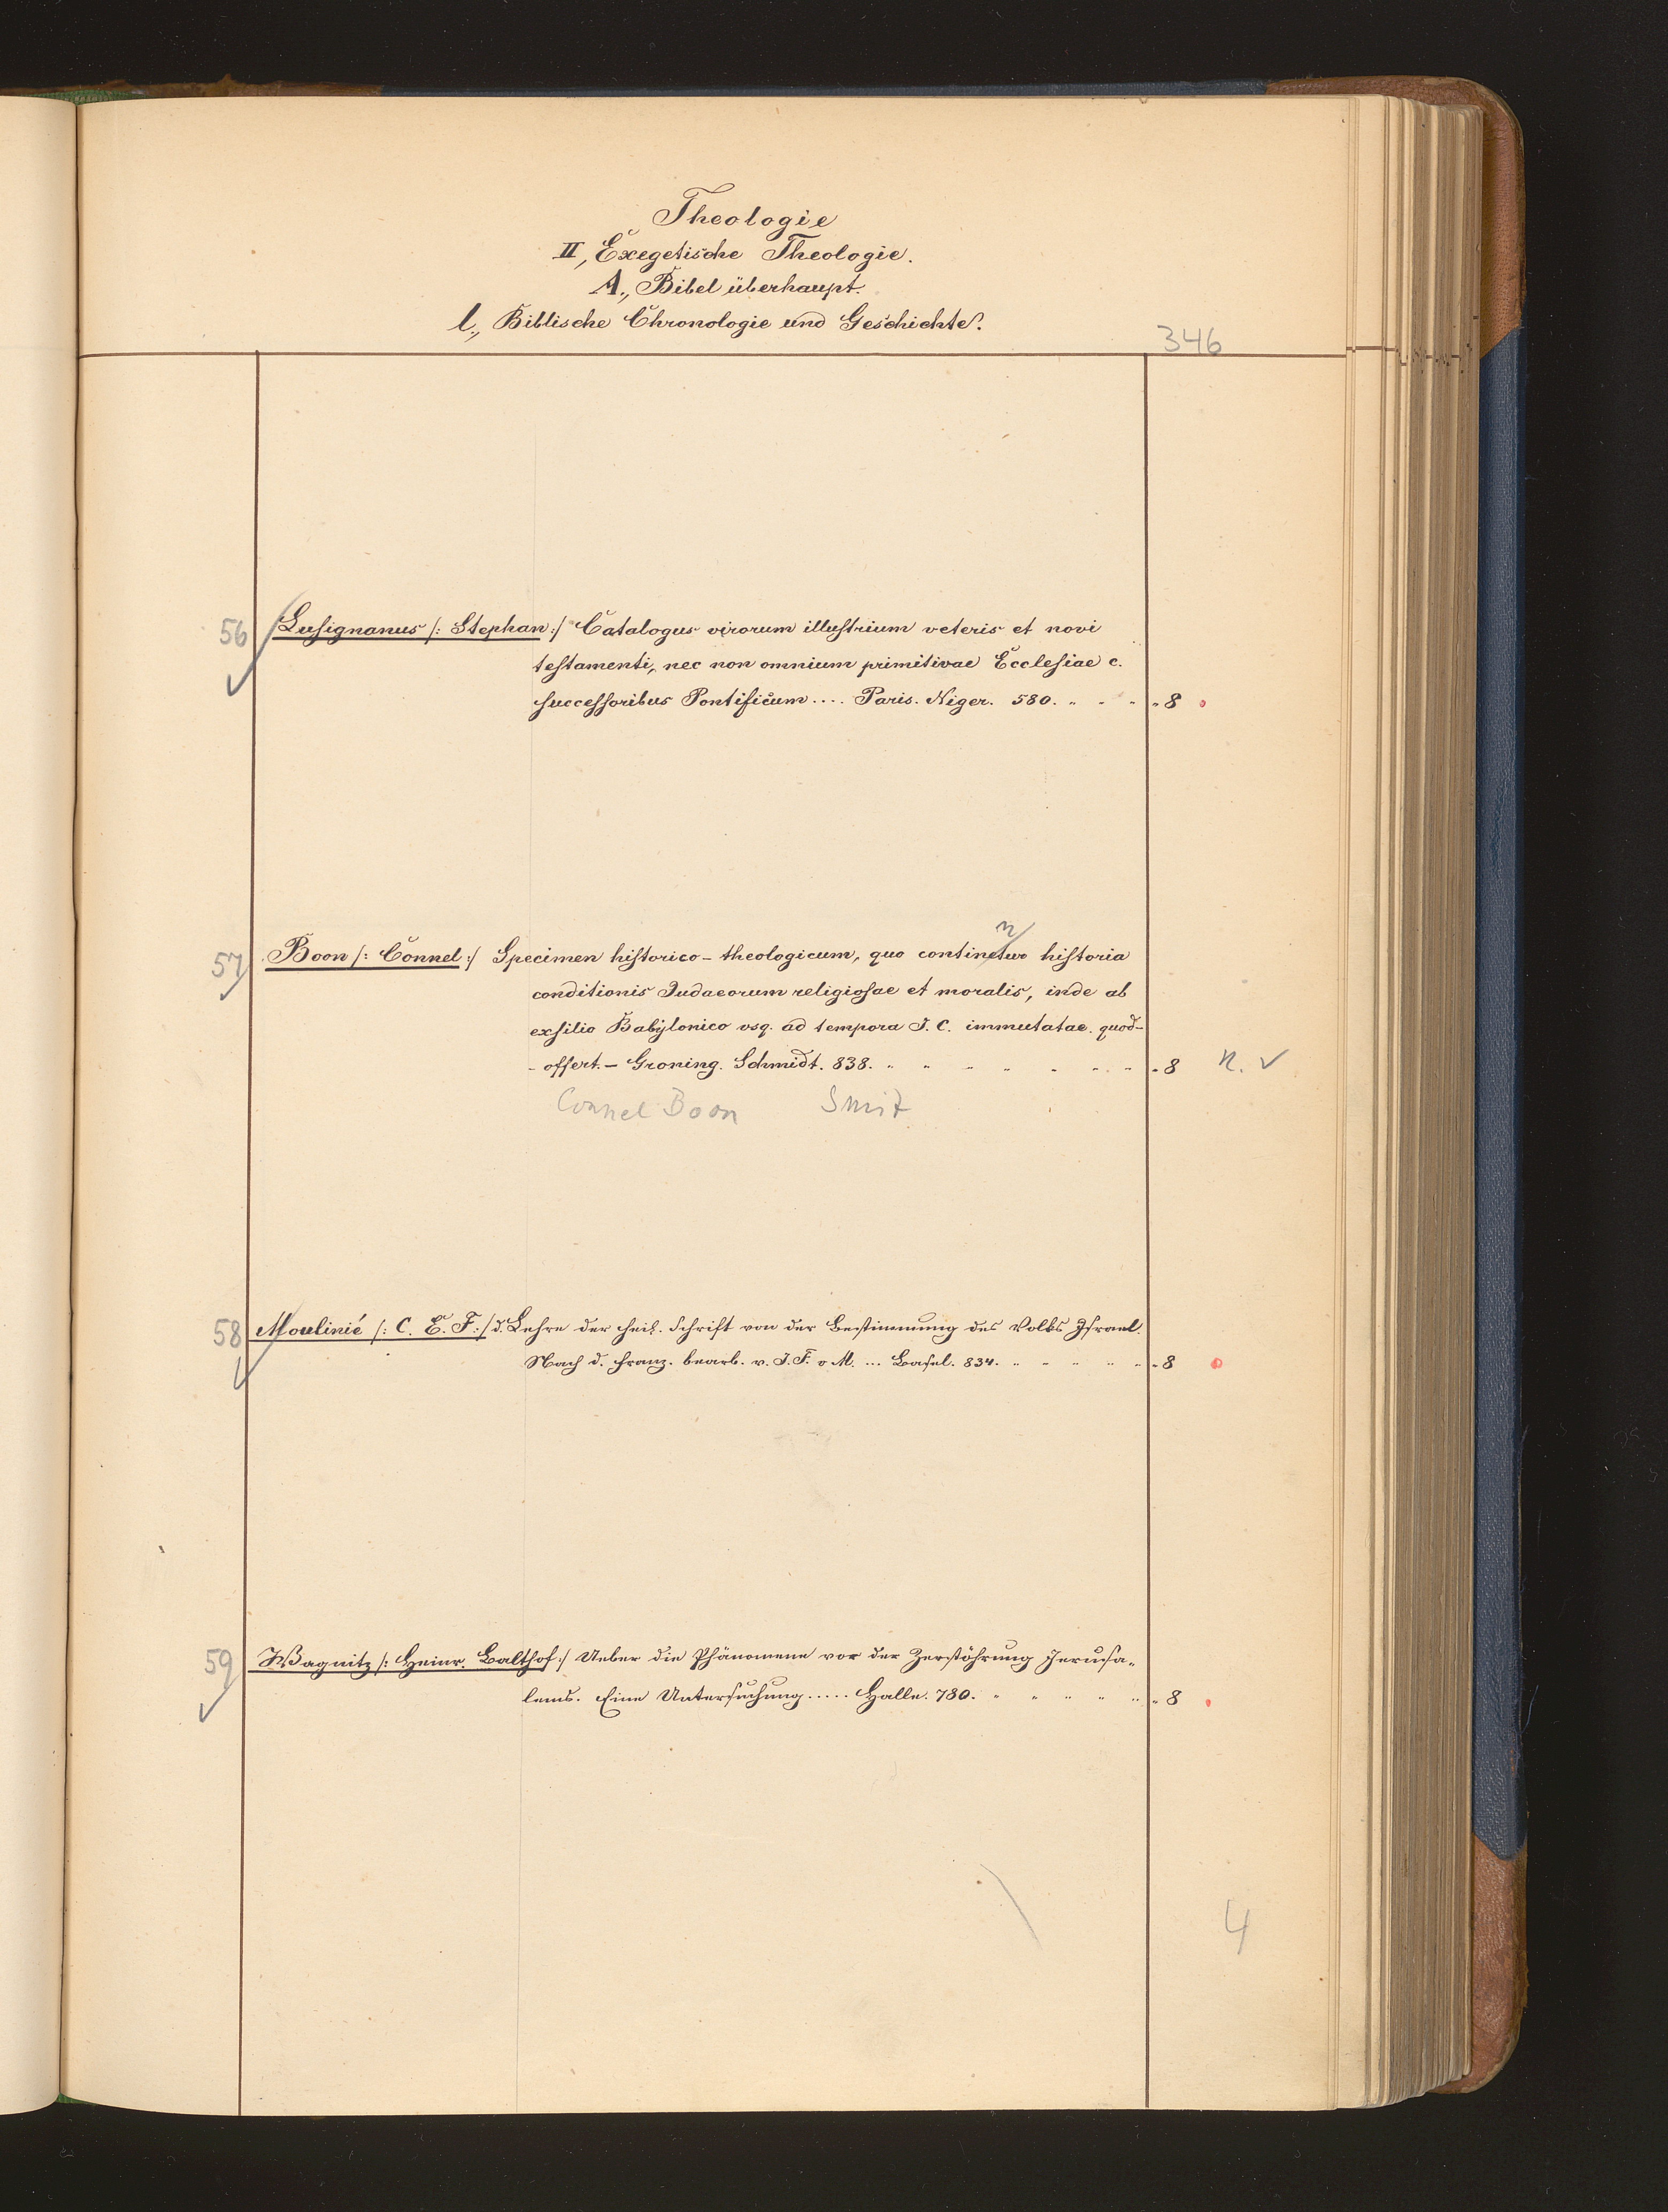 Theologie
II, Exegetische Theologie.
A., Bibel überhaupt.
l., Biblische Chronologie und Geschichte.
346
56 Lusignanus /: Stephan :/ Catalogus virorum illustrium veteris et novi
testamenti, nec non omnium primitivae Ecclesiae c.
successoribus Pontificum .... Paris. Niger. 580. " " " " 8
n
57 Boon /: Connel :/ Specimen historico-theologicum, quo continetur historia
conditionis Judaeorum religiosae et moralis, inde ab
exsilio Babylonico usq. ad tempora J. C. immutatae. quod-
- offert. - Groning. Schmidt. 838. " " " " " " " " 8 n. ✓
Connel Boon Smit
58 Moulinié /: C. E. F. :/ d. Lehre der heil. Schrift von der Bestimmung des Volks Israel.
Nach d. Franz. bearb. v. J. F. v M. ... Basel. 834. " " " " " " 8
59 Wagnitz /: Heinr. Balthas :/ Ueber die Phänomene vor der Zerstöhrung Jerusa-
lems. Eine Untersuchung ..... Halle. 780. " " " " " " 8
4